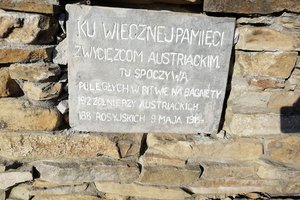 KU WIECZNEJ PAMIĘCI
ZWYCIĘZCOM AUSTRIACKIM.
TU SPOCZYWA
POLEGŁYCH W BITWIE NA BAGNETY
192 ŻOŁNIERZY AUSTRIACKICH
188 ROSYJSKICH 9 MAJA 1915